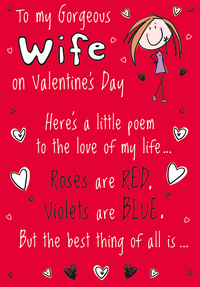 To my Gorgeous
Wife
on Valentine's Day
Here's a little poem
to the love of my life...
Roses are RED,
Violets are BLUE,
But the best thing of all is ...